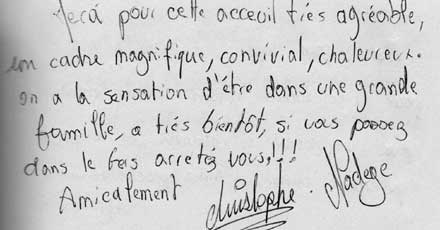 Merci pour cette acceuil très agréable,
un cadre magnifique, convivial, chaleureux.
on a la sensation d'être dans une grande
famille, a très bientôt, si vous passez
dans le Gers arretez vous!!!
Amicalement Christophe. Nadege